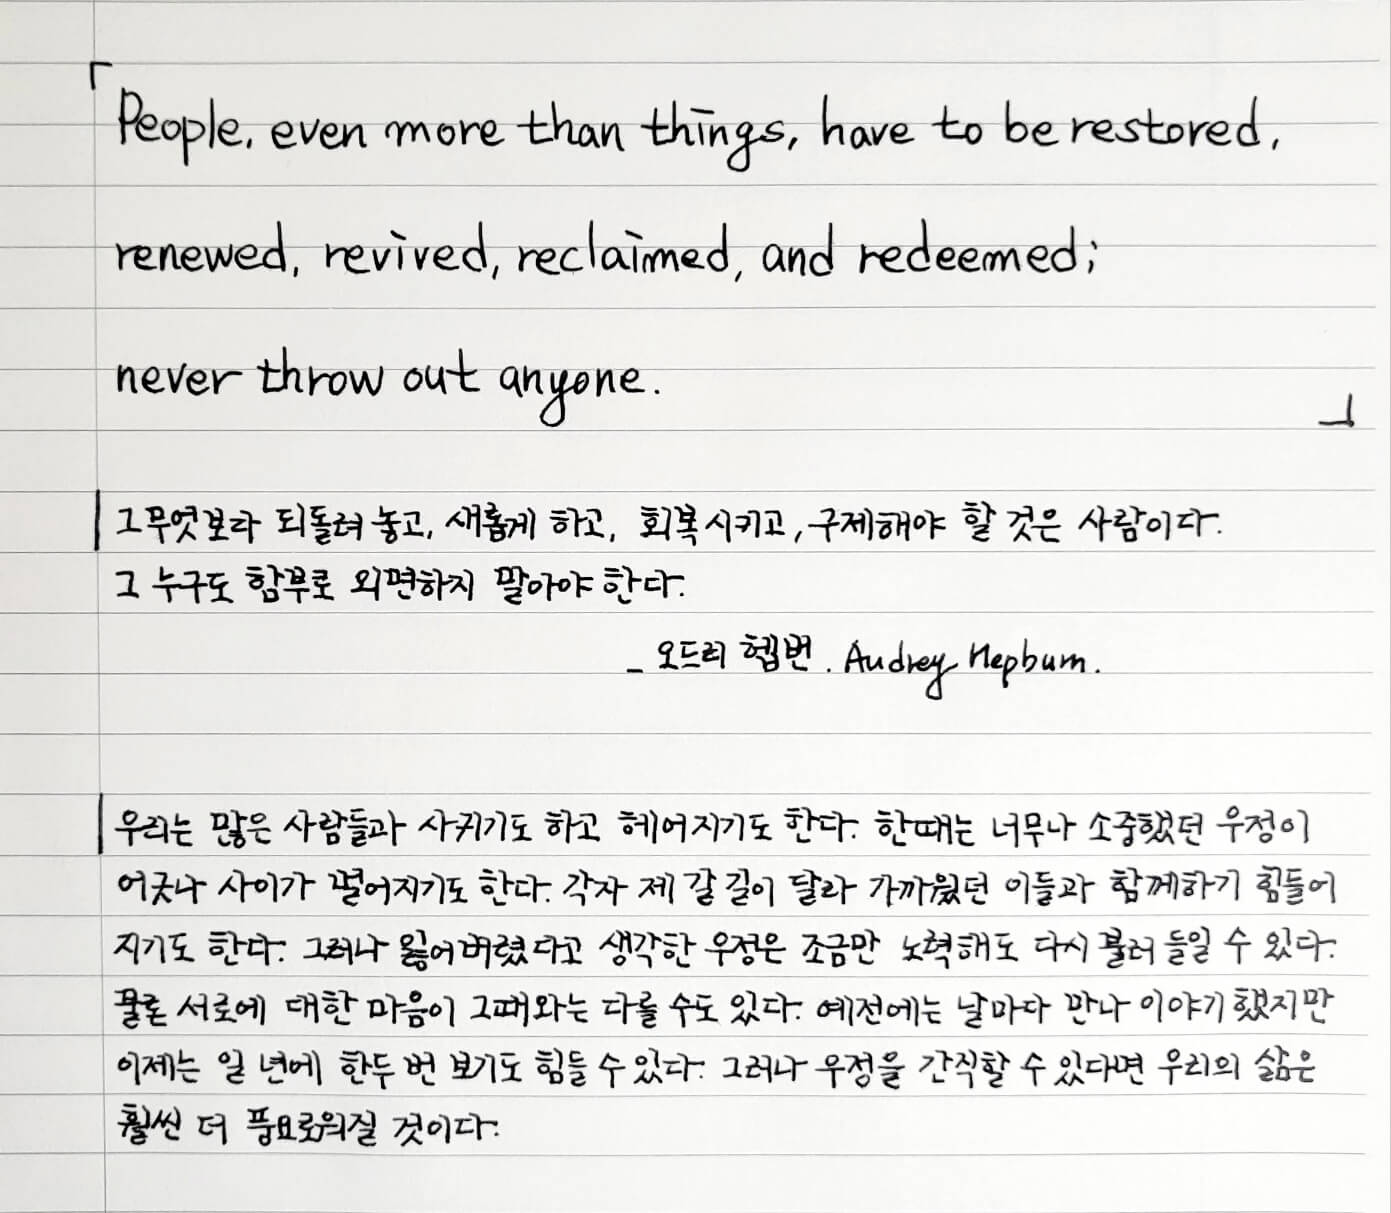 「People, even more than things, have to be restored,
renewed, revived, reclaimed, and redeemed;
never throw out anyone.」
그 무엇보라 되돌려 놓고, 새롭게 하고, 회복시키고, 구제해야 할 것은 사람이다.
그 누구도 함부로 외면하지 말아야 한다.
- 오드리 헵번. Audrey Hepburn.
우리는 많은 사람들과 사귀기도 하고 헤어지기도 한다. 한때는 너무나 소중했던 우정이
어긋나 사이가 멀어지기도 한다. 각자 제 갈 길이 달라 가까웠던 이들과 함께하기 힘들어
지기도 한다. 그러나 잃어버렸다고 생각한 우정은 조금만 노력해도 다시 불러 들일 수 있다.
물론 서로에 대한 마음이 그때와는 다를 수도 있다. 예전에는 날마다 만나 이야기했지만
이제는 일 년에 한두 번 보기도 힘들 수 있다. 그러나 우정을 간직할 수 있다면 우리의 삶은
훨씬 더 풍요로워질 것이다.